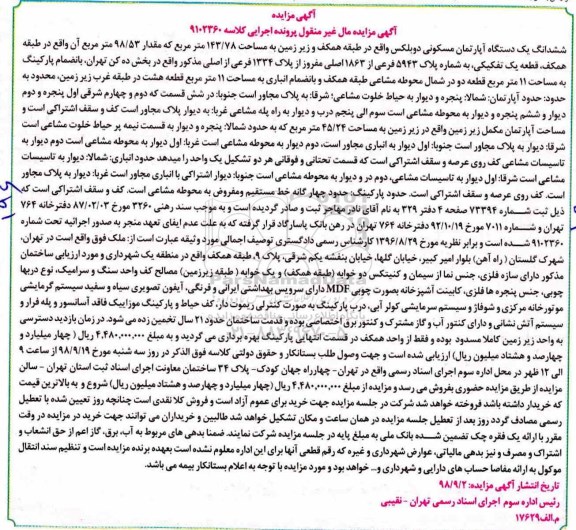 آگهی مزایده
آگهی مزایده مال غیر منقول پرونده اجرایی کلاسه ۹۱۰۲۳۶۰
ششدانگ یک دستگاه آپارتمان مسکونی دوبلکس واقع در طبقه همکف و زیر زمین به مساحت ۱۴۳/۷۸ متر مربع که مقدار ۹۸/۵۳ متر مربع آن واقع در طبقه
همکف، قطعه یک تفکیکی، به شماره پلاک ۵۹۴۳ فرعی از ۱۸۶۳ اصلی مفروز از پلاک ۱۳۳۴ فرعی از اصلی مذکور واقع در بخش ده کن تهران، بانضمام پارکینگ
به مساحت ۱۱ متر مربع قطعه دو در شمال محوطه مشاعی طبقه همکف و بانضمام انباری به مساحت ۱۱ متر مربع قطعه هشت در طبقه غرب زیر زمین، محدود به
حدود: حدود آپارتمان: شمالا: پنجره و دیوار به حیاط خلوت مشاعی؛ شرقا: به پلاک مجاور است جنوبا: در شش قسمت که دوم و چهارم شرقی اول پنجره و دوم
دیوار و ششم پنجره و دیوار به محوطه مشاعی است سوم الی پنجم درب و دیوار به راه پله مشاعی غربا: به دیوار پلاک مجاور است کف و سقف اشتراکی است و
مساحت آپارتمان مکمل زیر زمین واقع در زیر زمین به مساحت ۴۵/۲۴ متر مربع که به حدود شمالا: پنجره و دیوار به قسمت نیمه پر حیاط خلوت مشاعی است
شرقا: دیوار به پلاک مجاور است جنوبا: اول دیوار به انباری مجاور است، دوم دیوار به محوطه مشاعی است غربا: اول دیوار به محوطه مشاعی است دوم دیوار به
تاسیسات مشاعی کف روی عرصه و سقف اشتراکی است که قسمت تحتانی و فوقانی هر دو تشکیل یک واحد را میدهد حدود انباری: شمالا: دیوار به تاسیسات
مشاعی است شرقا: اول دیوار به تاسیسات مشاعی، دوم در و دیوار به محوطه مشاعی است جنوبا: دیوار اشتراکی با انباری مجاور است غربا: دیوار به پلاک مجاور
است. کف روی عرصه و سقف اشتراکی است. حدود پارکینگ: حدود چهار گانه خط مستقیم ومفروض به محوطه مشاعی است. کف و سقف اشتراکی است که
ذیل ثبت شماره ۷۳۳۹۴ صفحه ۴ دفتر ۳۲۹ به نام آقای نادر مهاجر ثبت و صادر گردیده است و به موجب سند رهنی ۳۲۶۰ مورخ ۸۷/۰۲/۰۳ دفترخانه ۷۶۴
تهران و شماره ۷۰۱۱ مورخ ۹۲/۱۰/۱۹ دفترخانه ۷۶۴ تهران در رهن بانک پاسارگاد قرار گرفته که به علت عدم ایفای تعهد منجر به صدور اجرائیه تحت شماره
۹۱۰۲۳۶۰ شده است و برابر نظریه مورخ ۱۳۹۶/۸/۲۹ کارشناس رسمی دادگستری توصیف اجمالی مورد وثیقه عبارت است از: ملک فوق واقع است در تهران،
شهرک گلستان (راه آهن) بلوار امیر کبیر، خیابان گلها، خیابان بنفشه یکم شرقی، پلاک ۹، طبقه همکف واقع در منطقه یک شهرداری و مورد ارزیابی ساختمان
مذکور دارای سازه فلزی، جنس نما از سیمان و کنیتکس دو خوابه (طبقه همکف) و یک خوابه (طبقه زیرزمین) مصالح کف واحد سنگ و سرامیک، نوع دربها
چوبی، جنس پنجره ها فلزی، کابینت آشپزخانه بصورت چوبی MDF دارای سرویس بهداشتی ایرانی و فرنگی، آیفون تصویری سیاه و سفید سیستم گرمایشی
موتورخانه مرکزی و شوفاژ و سیستم سرمایشی کولر آبی، درب پارکینگ به صورت کنترلی ریموت دار، کف حیاط و پارکینگ موزاییک فاقد آسانسور و پله فرار و
سیستم آتش نشانی و دارای کنتور آب و گاز مشترک و کنتور برق اختصاصی بوده و قدمت ساختمان حدود ۲۱ سال تخمین زده می شود. در زمان بازدید دسترسی
به واحد زیر زمین کاملا مسدود بوده و فقط از واحد همکف در قسمت انتهایی پارکینگ بهره برداری می گردید و به مبلغ ۴،۴۸۰،۰۰۰،۰۰۰ ریال ( چهار میلیارد و
چهارصد و هشتاد میلیون ریال) ارزیابی شده است و جهت وصول طلب بستانکار و حقوق دولتی کلاسه فوق الذکر در روز سه شنبه مورخ ۹۸/۹/۱۹ از ساعت ۹
الی ۱۲ ظهر در محل اداره سوم اجرای اسناد رسمی واقع در تهران- چهارراه جهان کودک- پلاک ۲۴ ساختمان معاونت اجرای اسناد ثبت استان تهران - سالن
مزایده از طریق مزایده حضوری بفروش می رسد و مزایده از مبلغ ۴،۴۸۰،۰۰۰،۰۰۰ ریال (چهار میلیارد و چهارصد و هشتاد میلیون ریال) شروع و به بالاترین قیمت
که خریدار داشته باشد فروخته خواهد شد شرکت در جلسه مزایده جهت خرید برای عموم آزاد است و فروش کلا نقدی است چنانچه روز تعیین شده با تعطیل
رسمی مصادف گردد روز بعد از تعطیل جلسه مزایده در همان ساعت و مکان تشکیل خواهد شد طالبین و خریداران می توانند جهت خرید در مزایده در وقت
مقرر با ارائه یک فقره چک تضمین شده بانک ملی به مبلغ پایه در جلسه مزایده شرکت نمایند. ضمنا بدهی های مربوط به آب، برق، گاز اعم از حق انشعاب و
اشتراک و مصرف و نیز بدهی مالیاتی، عوارض شهرداری و غیره که رقم قطعی آنها برای این اداره معلوم نشده است بعهده برنده مزایده است و تنظیم سند انتقال
موکول به ارائه مفاصا حساب های دارایی و شهرداری و... خواهد بود و مورد مزایده با توجه به اعلام بستانکار بیمه می باشد.
تاریخ انتشار آگهی مزایده: ۹۸/۹/۲
رئیس اداره سوم اجرای اسناد رسمی تهران - نقیبی
م.الف۱۷۶۲۹